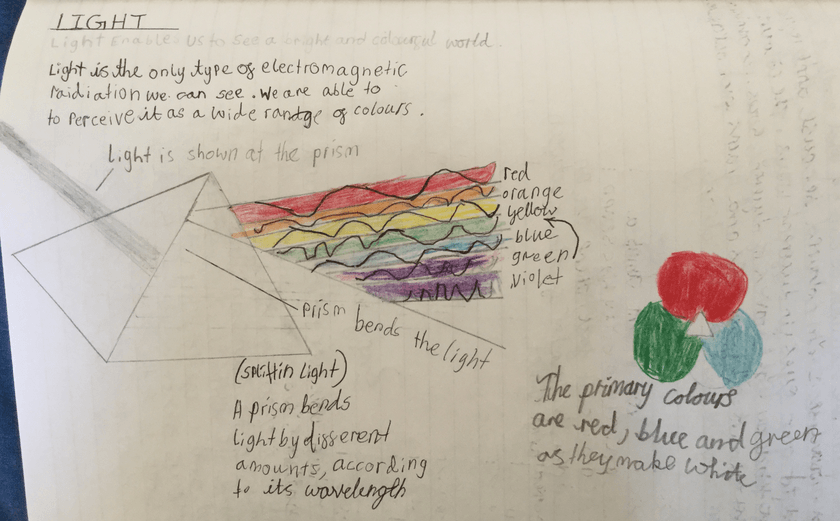 LIGHT
Light Enable Us to See a bright and colourful world.
Light is the only type of electromagnetic
raidiation we can see. We are able to
to perceive it as a wide randge of colours.
Light is shown at the prism
red
orange
yellow
blue
green
violet
prism bends the light
(splittin Light)
A prism bends
light by different
amounts, according
to its wavelength
The primary colours
are red, blue and green
as they make white